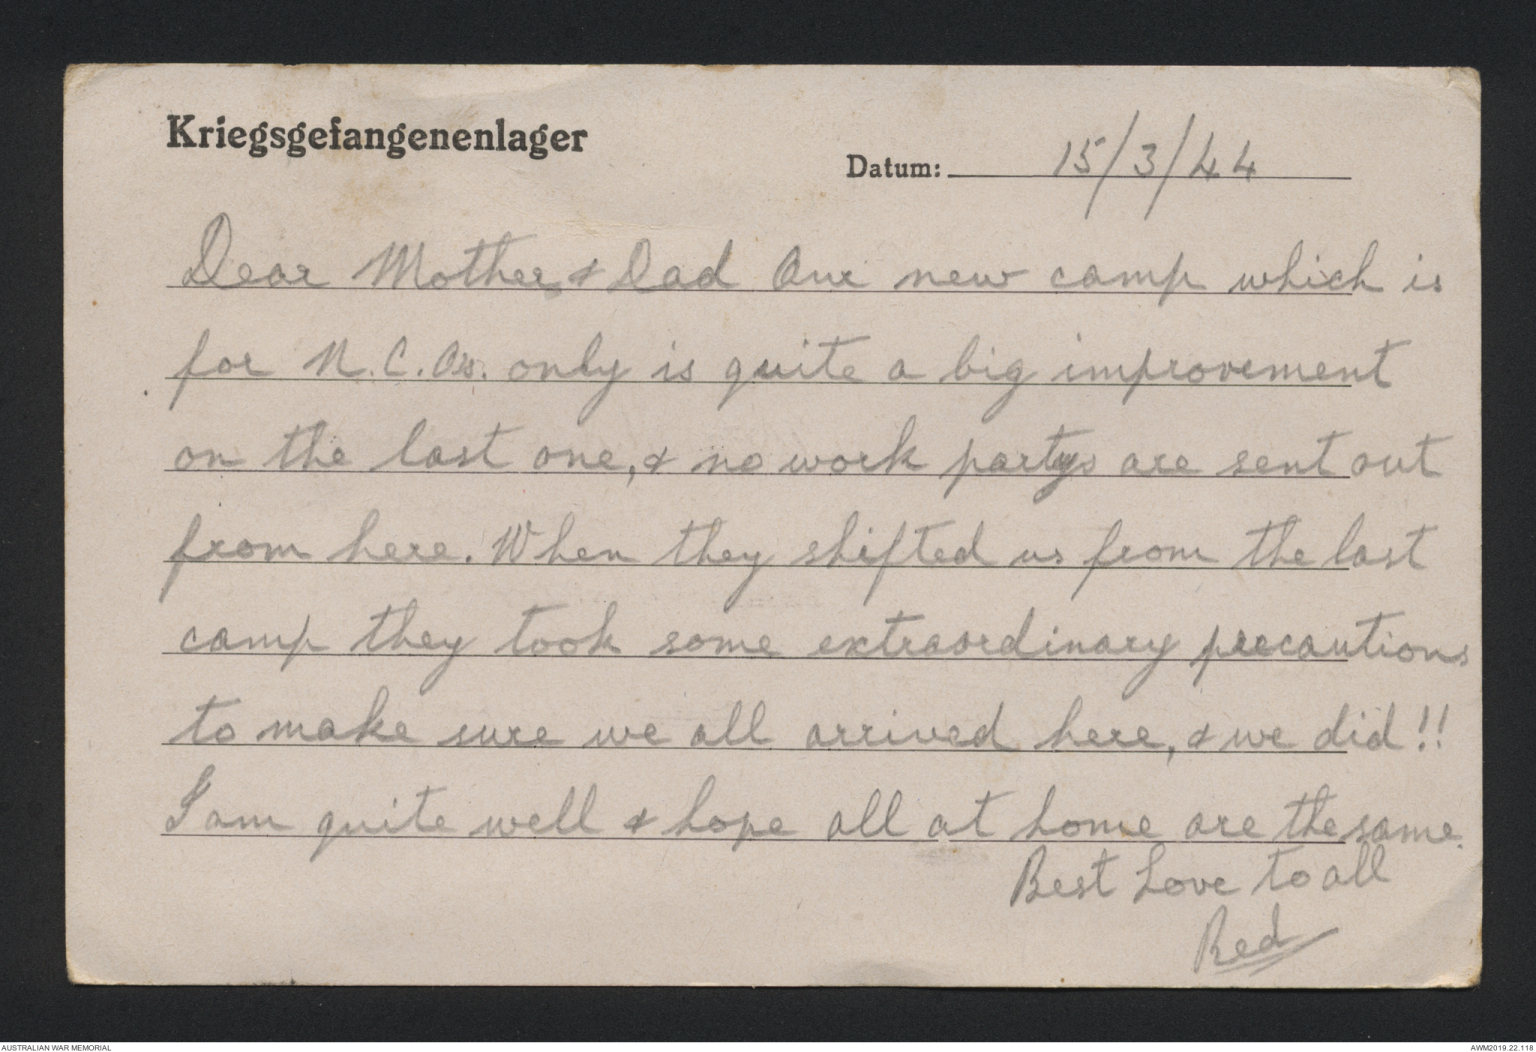 Kriegsgefangenenlager
Datum: 15/3/44
Dear Mother & Dad Our new camp which is
for N.C.Os. only is quite a big improvement
on the last one, & no work partys are sent out
from here. When they shifted us from the last
camp they took some extraordinary precautions
to make sure we all arrived here, & we did!!
I am quite well & hope all at home are the same.
Best Love to all
Red
AUSTRALIAN WAR MEMORIAL
AWM2019.22.118